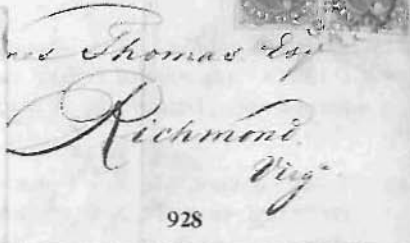 Thomas Esq
Richmond.
Virga
928